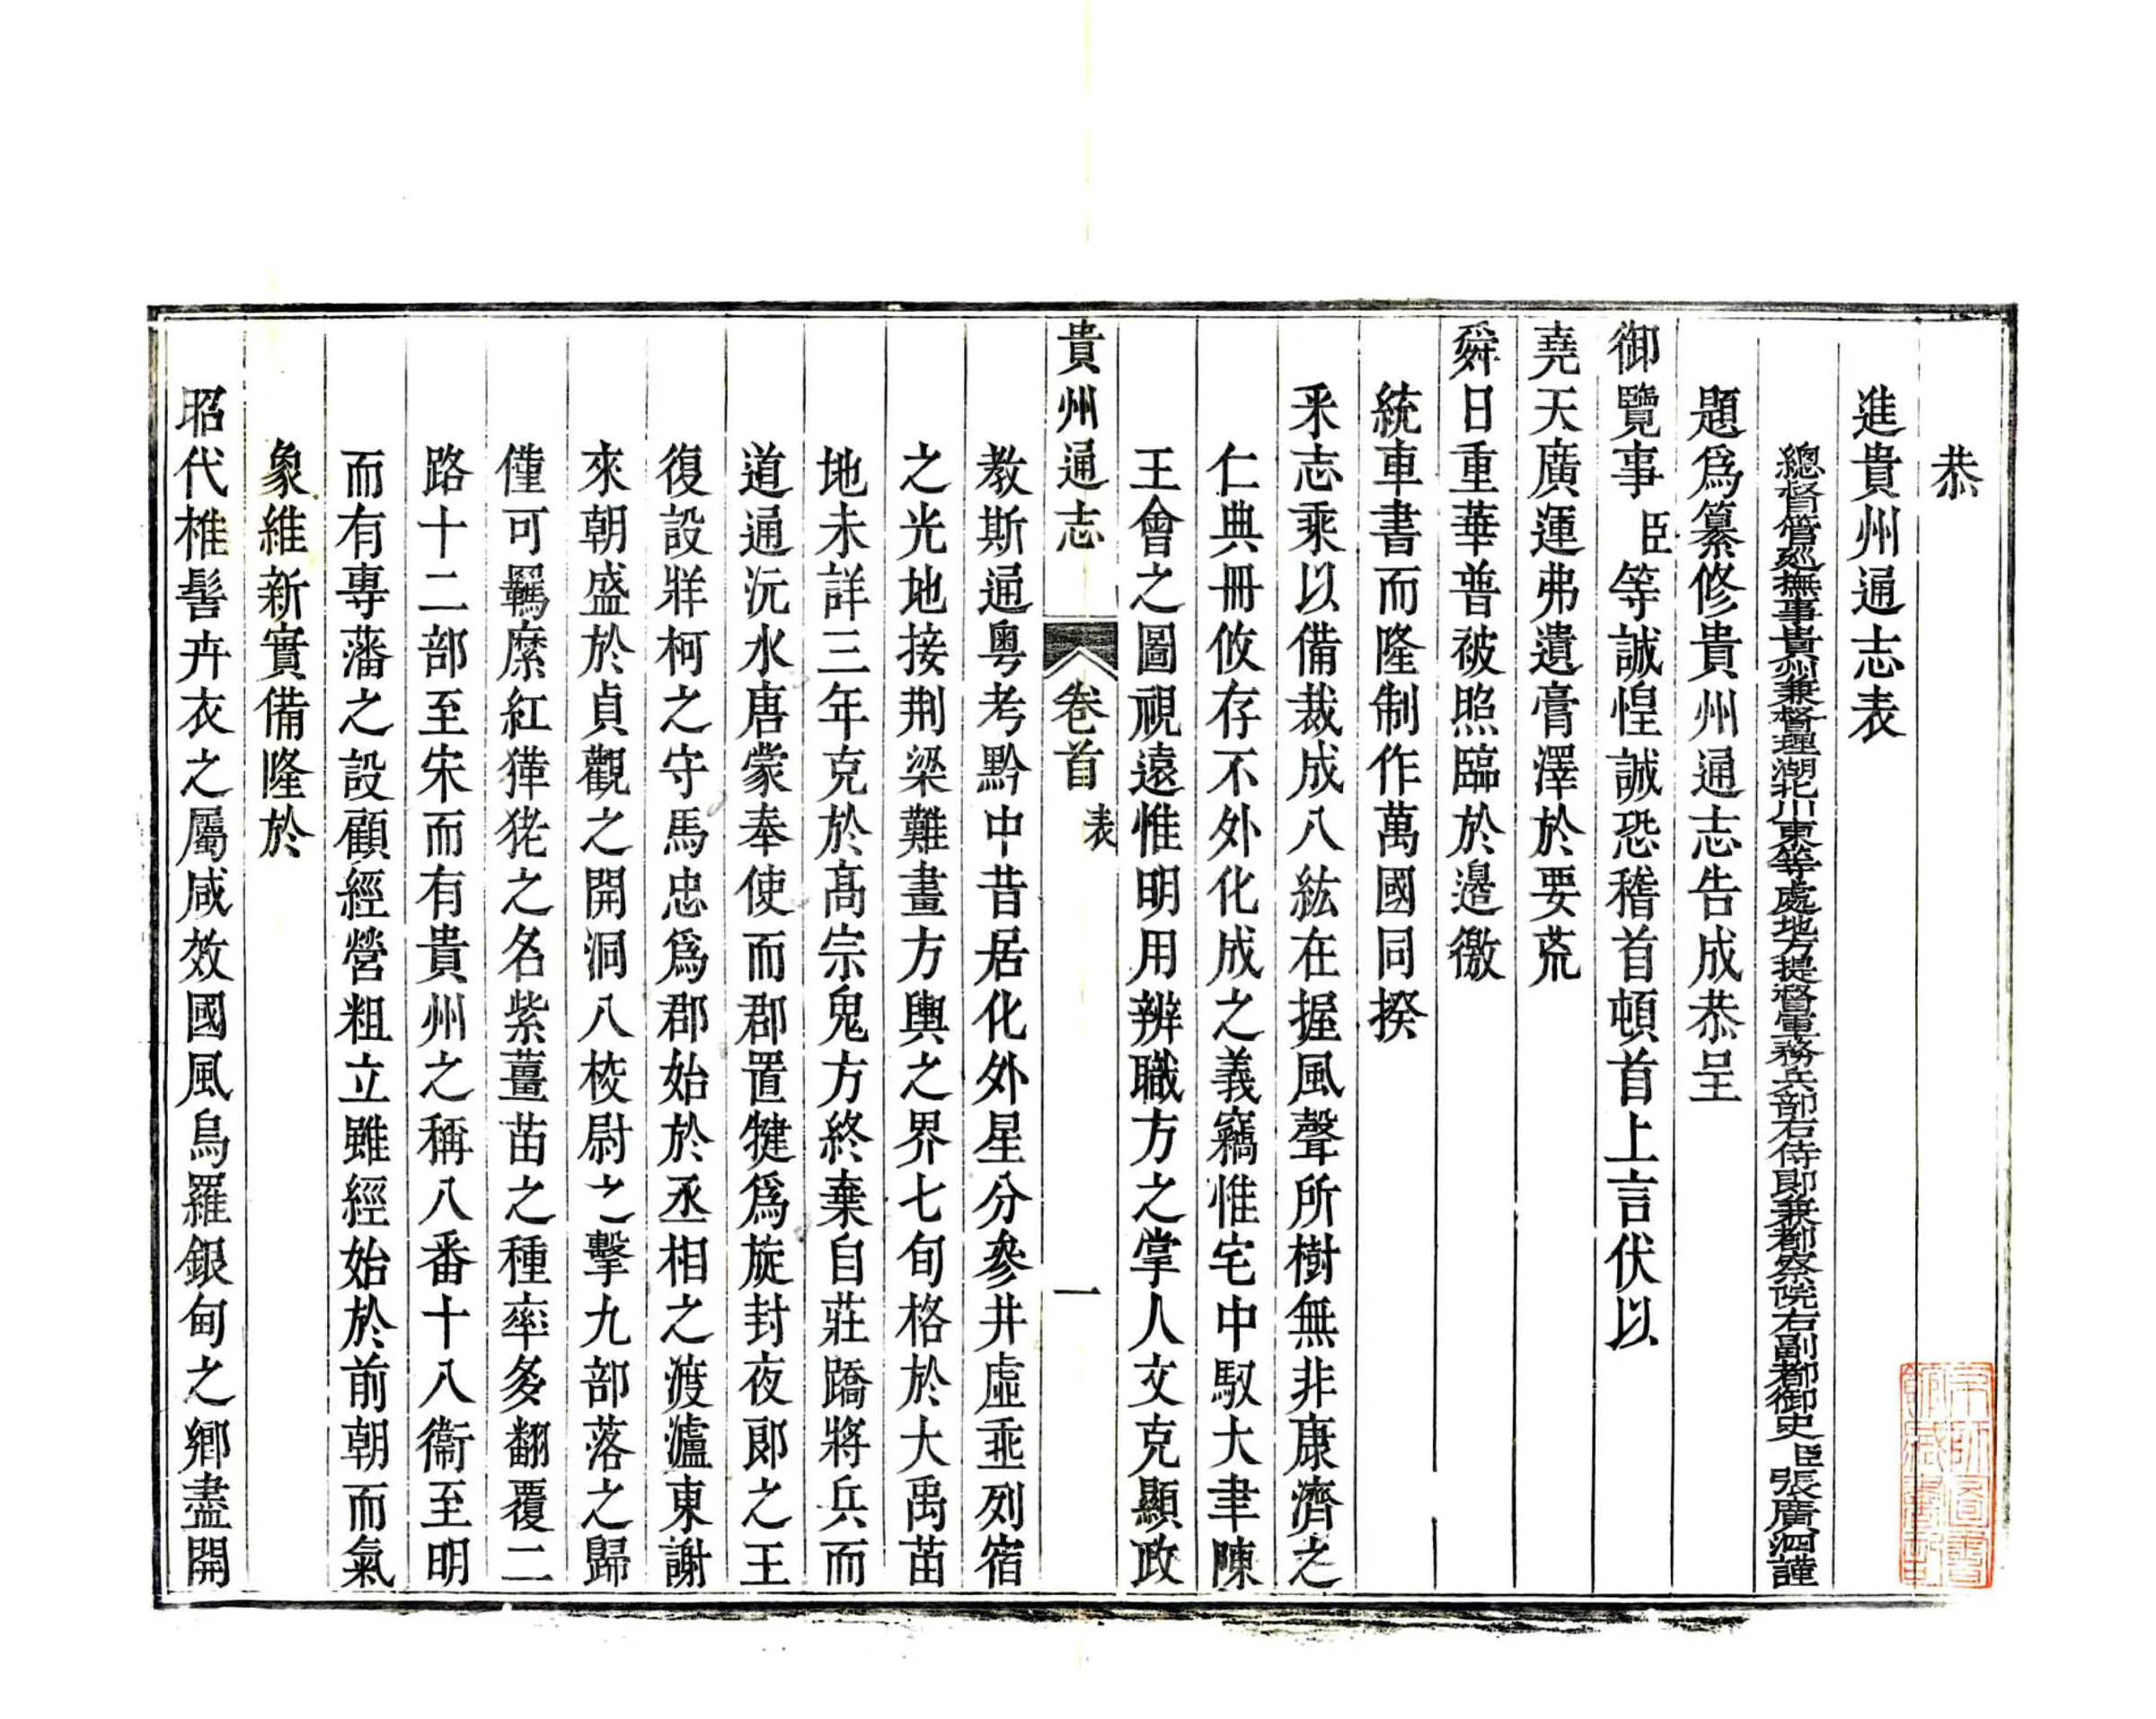 恭
進貴州通志表
總督管巡撫事貴州兼督理湖北川東等處地方提督軍務兵部右侍郞兼都察院右副都御史臣張廣泗謹
題爲纂修貴州通志告成恭呈
御覽事臣等誠惶誠恐稽首頓首上言伏以
堯天廣運弗遺膏澤於要荒
舜日重華普被照臨於邊徼
統車書而隆制作萬國同揆
釆志乘以備裁成八紘在握風聲所樹無非康濟之
仁典冊攸存不外化成之義竊惟宅中馭大聿陳
王會之圖視遠惟明用辨職方之掌人文克顯政
貴州通志 卷首 表 一
教斯通粤考黔中昔居化外星分參井虛乖列宿
之光地接荆梁難畫方輿之界七旬格於大禹苗
地未詳三年克於髙宗鬼方終棄自莊蹻將兵而
道通沅水唐蒙奉使而郡置犍爲旋封夜郞之王
復設牂柯之守馬忠爲郡始於丞相之渡瀘東謝
來朝盛於貞觀之開洞八校尉之擊九部落之歸
僮可羈縻紅㺔狫之名紫薑苗之種率多翻覆二
路十二部至宋而有貴州之稱八番十八衞至明
而有專藩之設顧經營粗立雖經始於前朝而氣
象維新實備隆於
昭代椎髻卉衣之屬咸效國風烏羅銀甸之鄉盡開